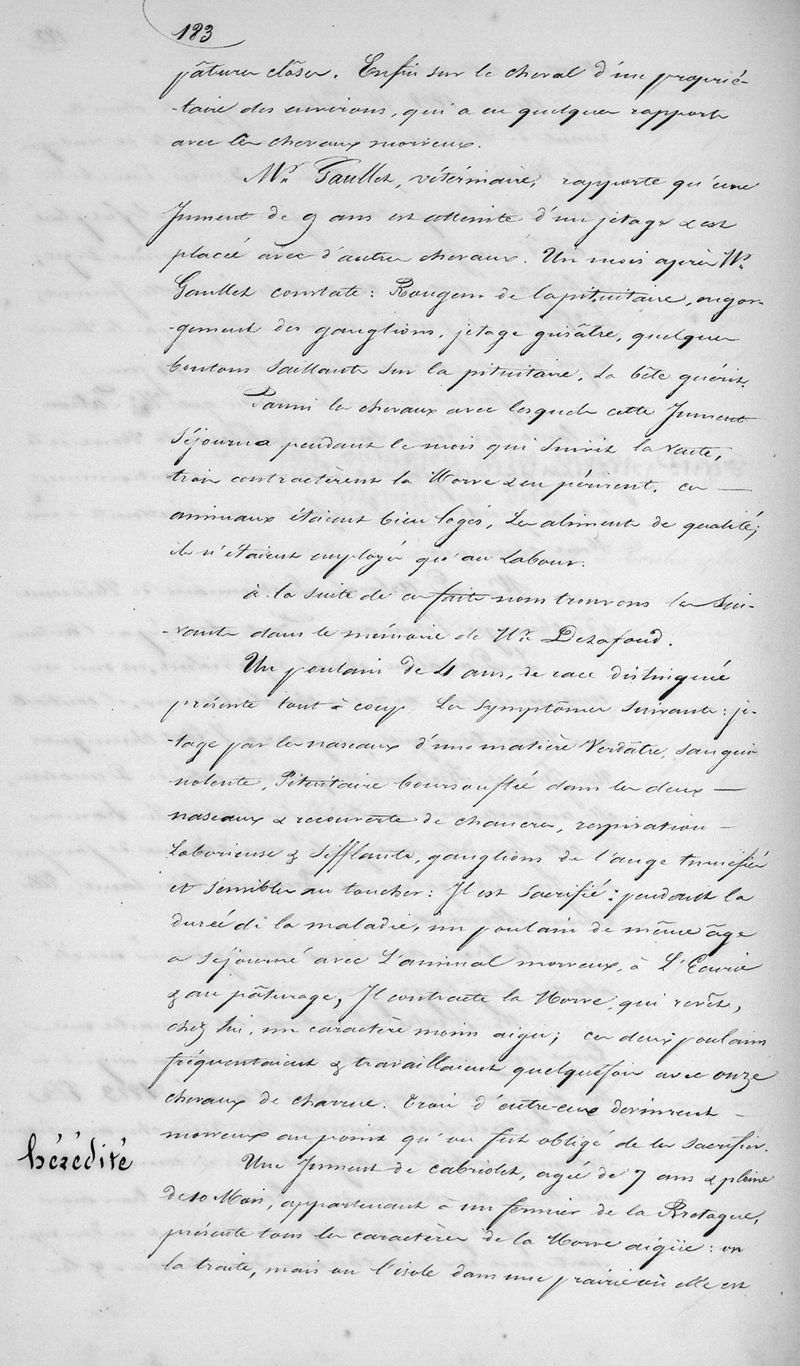 183
pâtures closes. Enfin sur le cheval d'un proprié-
-taire des environs, qui a eu quelques rapports
avec les chevaux morveux.
Mr Gaullet, vétérinaire, rapporte qu'une
Jument de 9 ans est atteinte d'un jetage & est
placée avec d'autres chevaux. Un mois après Mr
Gaullet constate : Rougeur de la pituitaire, engor-
-gement des ganglions, jetage grisâtre, quelques
boutons saillants sur la pituitaire. La bête guérit.
Parmi les chevaux avec lesquels cette Jument
séjourna pendant le mois qui suivit la vente,
trois contractèrent la Morve & en périrent. ces —
animaux étaient bien logés, Les aliments de qualité;
ils n'étaient employés qu'au Labour.
à la suite de ces faits nous trouvons les Sui-
-vants dans le mémoire de Mr Delafond.
Un poulain de 4 ans, de race distinguée
présente tout à coup Les symptômes suivants : je-
-tage par les naseaux d'une matière Verdâtre, sangui-
nolente, Pituitaire boursouflée dans les deux —
naseaux & recouverte de chancres, respiration —
Laborieuse & sifflante, ganglions de l'auge tuméfiés
et sensibles au toucher : Il est sacrifié : pendant la
durée de la maladie, un poulain de même âge
a séjourné avec L'animal morveux, à L'Ecurie
& au pâturage, Il contracte la Morve, qui revêt,
chez lui, un caractère moins aigu; ces deux poulains
fréquentaient & travaillaient quelquefois avec onze
chevaux de charrue. trois d'entre eux devinrent —
morveux au point qu'on fut obligé de les sacrifier.
hérédité
Une Jument de cabriolet, agée de 7 ans & pleine
de 10 Mois, appartenant à un fermier de la Bretagne,
présente tous les caractères de la Morve aigüe : on
la traite, mais on l'isole dans une prairie où elle est